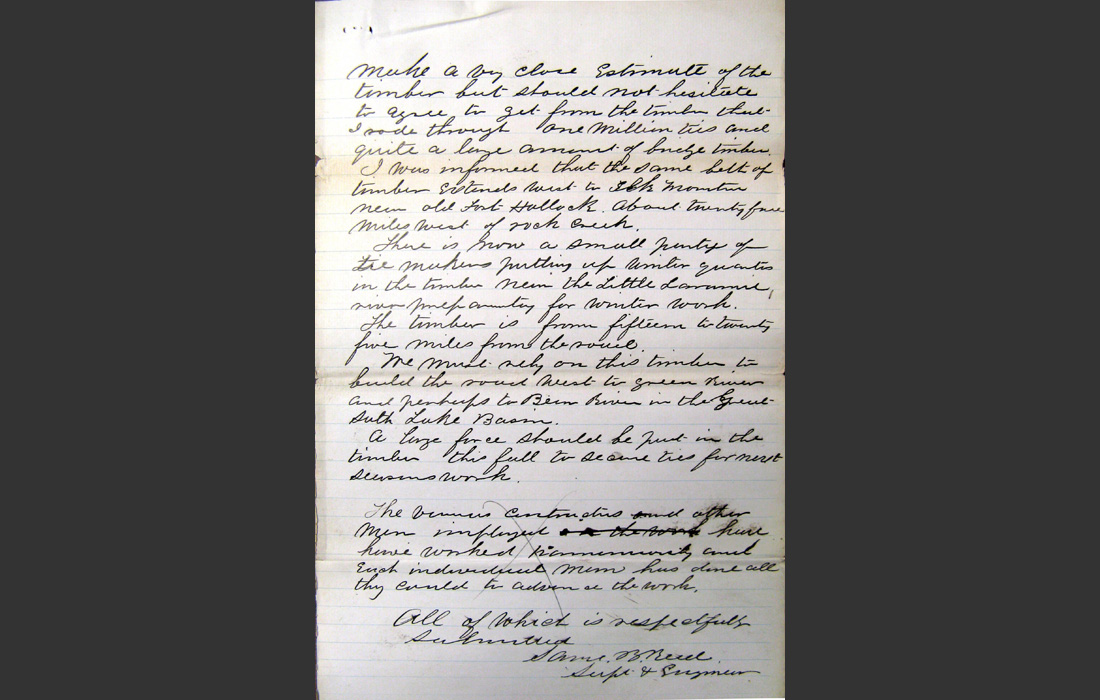 Make a very close Estimate of the
timber but should not hesitate
to agree to get from the timber that
I rode through one Million ties and
quite a large amount of bridge timber.
I was informed that the same belt of
timber Extends west to Elk Mountain
near old Fort Halleck. About twenty five
Miles west of rock Creek.
There is now a small party of
tie makers putting up winter quarters
in the timber near the Little Laramie
river preparatory for winter work.
The timber is from fifteen to twenty
five miles from the road.
We must rely on this timber to
build the road West to green River
and perhaps to Bear River in the Great
Salt Lake Basin.
A large force should be put in the
timber this fall to secure ties for next
seasons work.
The various contractors and other
Men employed on the work have
have worked harmoniously and
Each individual Man has done all
they could to advance the work.
All of which is respectfully
Submitted
Saml. B. Reed
Supt & Engineer